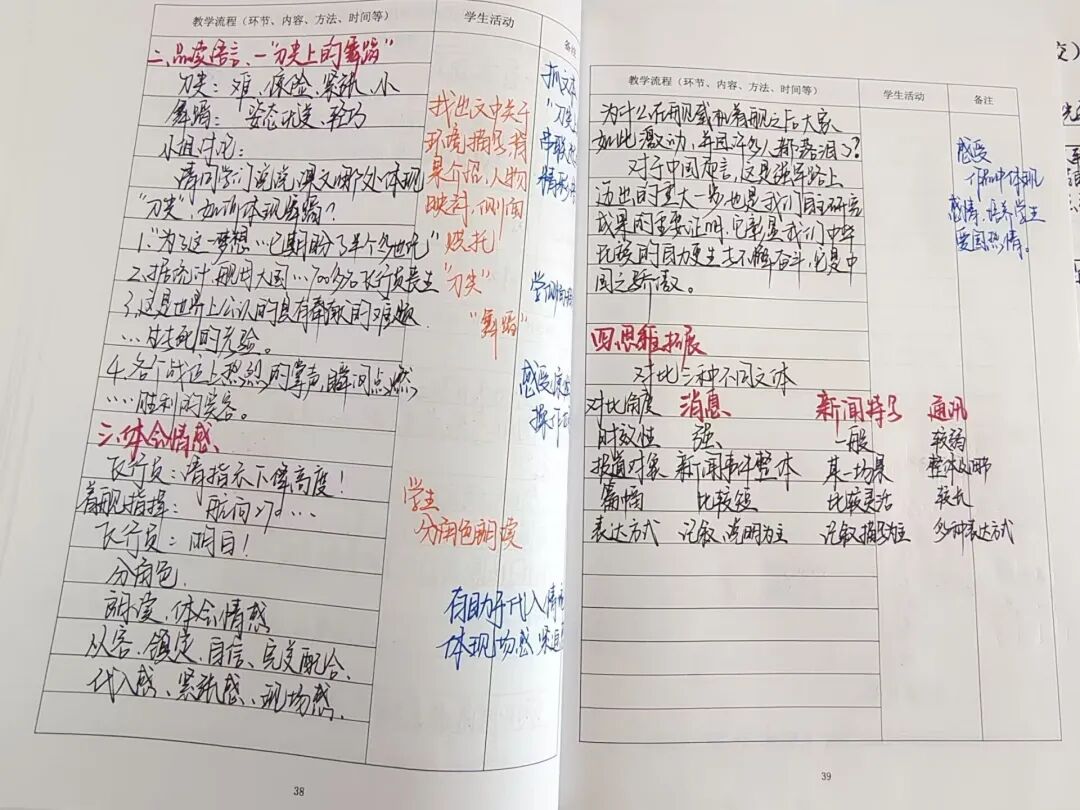 教学流程（环节、内容、方法、时间等）
学生活动
备注
二、品读语言、一"刀尖上的舞蹈"
刀尖：难、危险、紧张、小
舞蹈：姿态优美、轻巧
小组讨论：
请同学们说说课文哪处体现
"刀尖"，如何体现舞蹈？
1."为了这一梦想…已期盼了半个多世纪"
2.据统计，舰母大国…700多名飞行员丧生
3.这是世界上公认的具有
…生与死的考验。
4.各个战位上热烈的掌声，瞬间点燃
……胜利的笑容。
三、体会情感
飞行员：请指示下降高度！
着舰指挥：航向
飞行员：明白！
分角色
朗读，体会情感
从容、镇定、自信、完美配合、
代入感、紧张感、现场感、
找出文中关于
环境描写，背
景介绍，人物
映衬，侧面
烘托
"刀尖"
"舞蹈"
学生
分角色朗读
抓文本
"刀尖
串联
情形
感受
操作
有助于代入情
体现现场感、紧迫
38
教学流程（环节、内容、方法、时间等）
学生活动
备注
为什么在舰载机着舰之后大家
如此激动，并且许多人都落泪了？
对于中国而言，这是强军路上
迈出的重大一步，也是我们自主研究
成果的重要证明，它彰显我们中华
民族的自力更生、不懈奋斗，它是中
国之骄傲。
感受
作品中体现
感情，培养学生
爱国热情。
四、思维拓展
对比三种不同文体
对比角度 消息 新闻特写 通讯
时效性 强 一般 较弱
报道对象 新闻事件整体 某一场景 整体及细节
篇幅 比较短 比较灵活 较长
表达方式 记叙、说明为主 记叙描写为主 多种表达方式
39